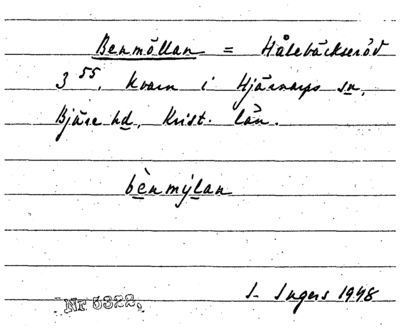 Benmöllan = Hålebäckseröd
3⁵⁵. Kvarn i Hjärnarps sn,
Bjäre hd, Krist. län.
bènmýlan
I. Ingers 1948
Nr 5322.